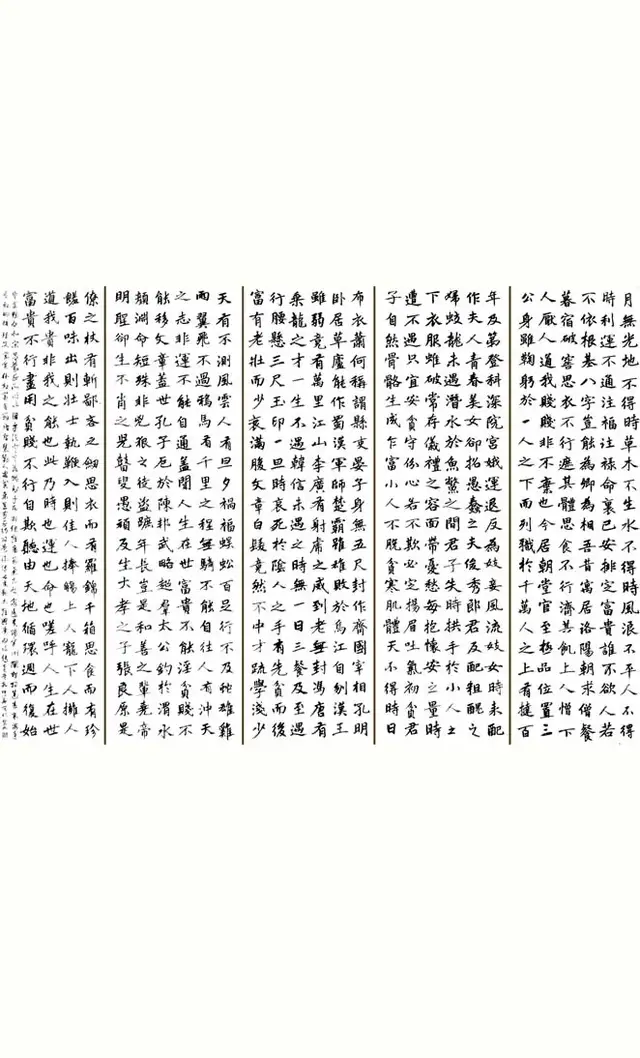 天有不測風雲人有旦夕禍福蜈蚣百足行不及蛇雄雞
雨翼飛不過鴉馬有千里之程無騎不能自往人有沖天
之志非運不能自通蓋聞人生在世富貴不能淫貧賤不
能移文章蓋世孔子厄於陳邦武略超群太公釣於渭水
顏淵命短殊非兇狠之徒盜蹠年長豈是和善之輩堯帝
明聖卻生不肖之兒瞽叟愚頑反生大孝之子張良原是
布衣蕭何稱謂縣吏晏子身無五尺封作齊國宰相孔明
卧居草廬能作蜀漢軍師楚霸雖雄敗於烏江自刎漢王
雖弱竟有萬里江山李廣有射虎之威到老無封馮唐有
乘龍之才一生不遇韓信未遇之時無一日三餐及至遇
行腰懸三尺玉印一旦時衰死於陰人之手有先貧而後
富有老壯而少衰滿腹文章白髮竟然不中才疏學淺少
年及第登科深院宮娥運退反為妓妾風流妓女時來配
作夫人青春美女卻招愚蠢之夫俊秀郎君反配粗醜之
婦蛟龍未遇潛水於魚鱉之間君子失時拱手於小人之
下衣服雖破常存儀禮之容面帶憂愁每抱懷安之量時
遭不遇只宜安貧守份心若不欺必定揚眉吐氣初貧君
子自然骨骼生成乍富小人不脫貧寒肌體天不得時日
月無光地不得時草木不生水不得時風浪不平人不得
時利運不通注福注祿命裏已安排定富貴誰不欲人若
不依根基八字豈能為卿為相吾昔寓居洛陽朝求僧餐
暮宿破窖思衣不行遮其體思食不行濟其飢上人憎下
人厭人道我賤非不棄也今居朝堂官至極品位置三
公身雖鞠躬於一人之下而列職於千萬人之上有撻百
僚之杖有斬鄙吝之劍思衣而有羅錦千箱思食而有珍
饈百味出則壯士執鞭入則佳人捧觴上人寵下人擁人
道我貴非我之能也此乃時也運也命也嗟呼人生在世
富貴不行盡用貧賤不行自欺聽由天地循環週而復始